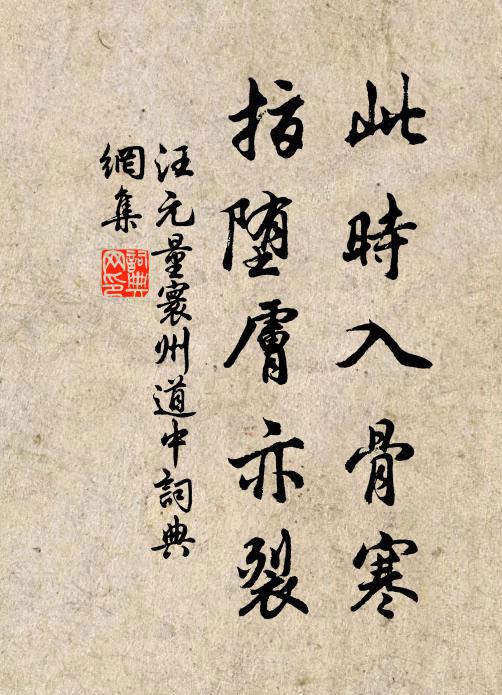 此時入骨寒
指堕膚亦裂
汪元量寰州道中詞典
網集
詞典网印